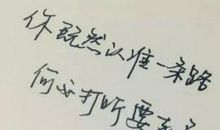 你既然认准一条路
何必打听要走